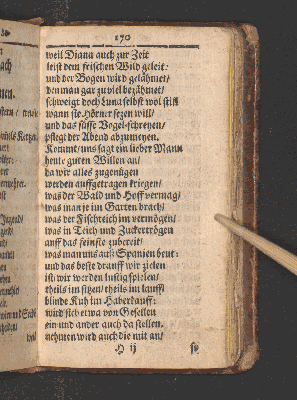 170
weil Diana auch zur Zeit
leist dem frischen Wild geleit:
und der Bogen wird gelähmet/
den man gar zu viel bezähmet/
schweigt doch Luna selbst wol still
wann sie Hörner sezen will/
und das süsse Vogel-schreyen/
pflegt der Abend abzumeyen.
Kommt/uns sagt ein lieber Mann
heute guten Willen an/
da wir alles zugenügen
werden auffgetragen kriegen/
was der Wald und Hoff vermag/
was man je im Garten brach/
was der Fischreich im vermögen/
was in Teich und Zuckertrögen
auff das feinste zubereit/
was man uns auß Spanien beut:
und das beste drauff wir zielen
ist/wir werden lustig spielen/
theils im sitzen/theils im lauff/
blinde Kuh im Haberkauff:
wird sich etwa von Gesellen
ein und ander auch da stellen.
nehmen wird auch die mit an/
H ij